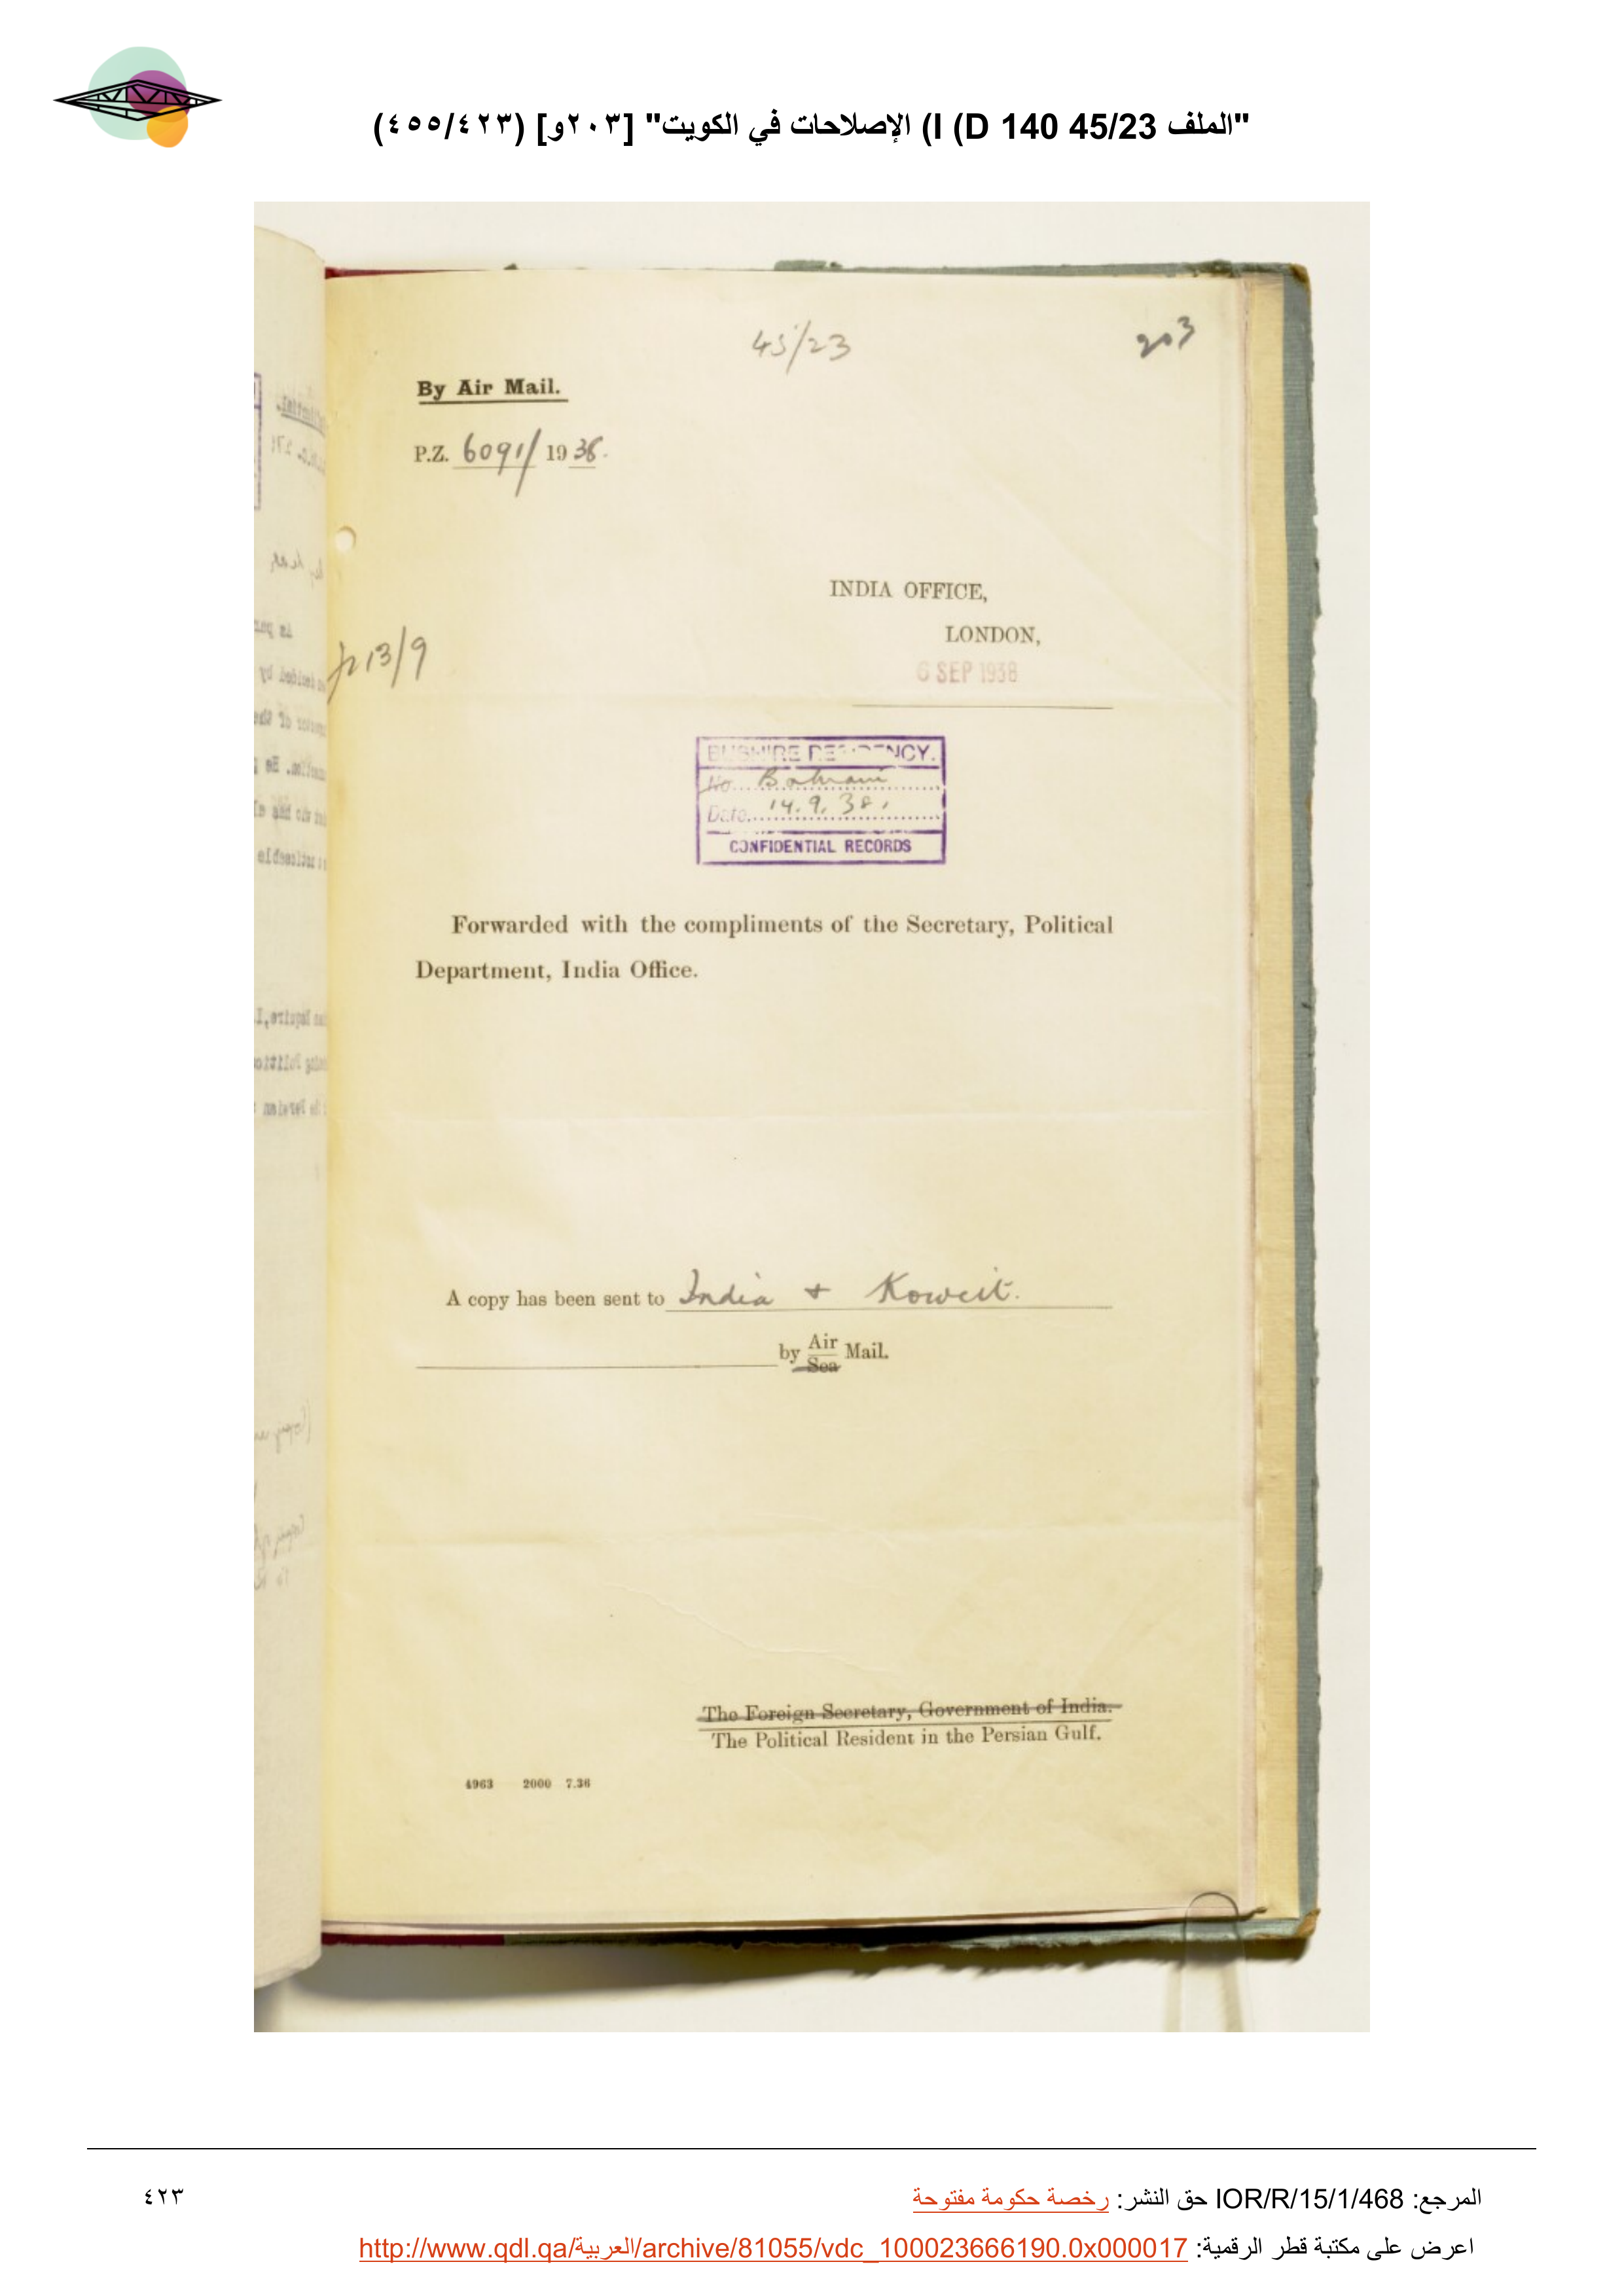 "الملف 45/23 I (D 140) الإصلاحات في الكويت" [٢٠٣و] (٤٥٥/٤٢٣)
45/23
203
By Air Mail.
P.Z. 6091/1938.
INDIA OFFICE,
LONDON,
6 SEP 1938
13/9
BUSHIRE RESIDENCY.
No. Bahrain
Date. 14.9.38.
CONFIDENTIAL RECORDS
Forwarded with the compliments of the Secretary, Political
Department, India Office.
A copy has been sent to India + Koweit.
by Air Mail.
Sea
The Foreign Secretary, Government of India.
The Political Resident in the Persian Gulf.
4963 2000 7.36
المرجع: IOR/R/15/1/468 حق النشر: رخصة حكومة مفتوحة
٤٢٣
اعرض على مكتبة قطر الرقمية: http://www.qdl.qa/العربية/archive/81055/vdc_100023666190.0x000017